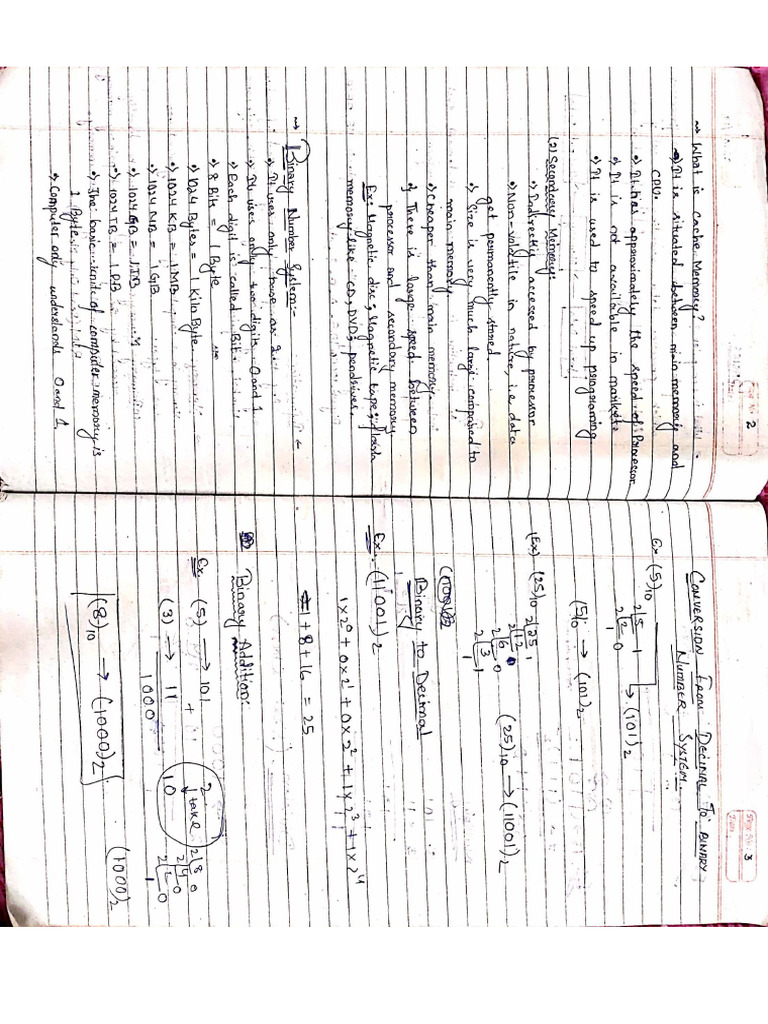 2
~> What is cache Memory?
-> It is situated between main memory and
CPU.
-> It has approximately the speed of Processor
-> It is not available in markets
-> It is used to speed up programming
(2) Secondary Memory:
-> Indirectly accessed by processor
-> Non-volatile in nature, i.e data
get permanently stored
-> Size is very much large compared to
main memory
-> Cheaper than main memory.
-> There is large speed between
processor and secondary memory
Ex: Magnetic disc, Magnetic tape,
memory like CD, DVD, pendrives.
~> Binary Number System:-
-> It uses only base as 2
-> It uses only two digits 0 and 1
-> Each digit is called Bit.
-> 8 Bit = 1 Byte
-> 1024 Bytes = 1 KiloByte
-> 1024 KB = 1 MB
-> 1024 MB = 1 GB
-> 1024 GB = 1 TB
-> 1024 TB = 1 PB
-> The basic unit of computer memory is
1 Byte
-> Computer only understands 0 and 1.
3
CONVERSION FROM DECIMAL TO BINARY
NUMBER SYSTEM.
Ex (5)10
2 5 1
2 2 0
1
→ (101)2
(5)10 → (101)2
(Ex) (25)10
2 25 1
2 12 0
2 6 0
2 3 1
1
(25)10 → (11001)2
Binary to Decimal
Ex. (11001)2
1×2⁰ + 0×2¹ + 0×2² + 1×2³ + 1×2⁴
1 + 8 + 16 = 25
Binary Addition:
Ex. (5) → 101 +
(3) → 11
1000
2
↓ take
10
2 8 0
2 4 0
2 2 0
1
(1000)2
(8)10 → (1000)2